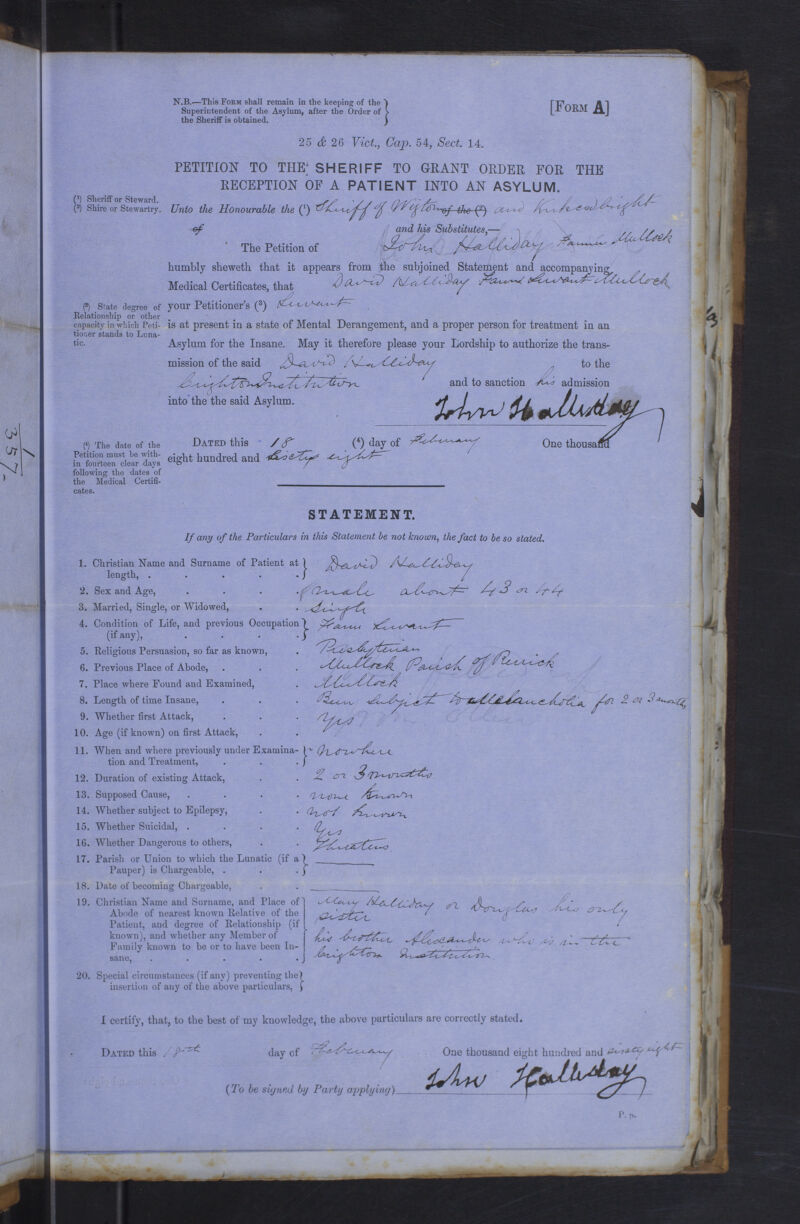 N.B.—This Form shall remain in the keeping of the
Superintendent of the Asylum, after the Order of
the Sheriff is obtained.
[Form A]
25 & 26 Vict., Cap. 54, Sect. 14.
PETITION TO THE SHERIFF TO GRANT ORDER FOR THE
RECEPTION OF A PATIENT INTO AN ASYLUM.
(¹) Sheriff or Steward.
(²) Shire or Stewartry.
Unto the Honourable the (¹) Sheriff of Wigton of the (²) and Kirkcudbright
of and his Substitutes,—
The Petition of John Halliday Farmer Mullock
humbly sheweth that it appears from the subjoined Statement and accompanying
Medical Certificates, that David Halliday Farm Servant Mullock
(³) State degree of
Relationship or other
capacity in which Peti-
tioner stands to Luna-
tic.
your Petitioner's (³) Servant
is at present in a state of Mental Derangement, and a proper person for treatment in an
Asylum for the Insane. May it therefore please your Lordship to authorize the trans-
mission of the said David Halliday to the
Crighton Institution and to sanction his admission
into the the said Asylum.
John Halliday
(⁴) The date of the
Petition must be with-
in fourteen clear days
following the dates of
the Medical Certifi-
cates.
Dated this 18 (⁴) day of February One thousand
eight hundred and sixty eight
1
357.
STATEMENT.
If any of the Particulars in this Statement be not known, the fact to be so stated.
1. Christian Name and Surname of Patient at
length, . . . . . David Halliday
2. Sex and Age, . . . . male about 43 or 44
3. Married, Single, or Widowed, . . Single
4. Condition of Life, and previous Occupation
(if any), . . . . Farm Servant
5. Religious Persuasion, so far as known, . Presbyterian
6. Previous Place of Abode, . . . Mullock Parish of Rerrick
7. Place where Found and Examined, . Mullock
8. Length of time Insane, . . . Been subject to Melancholia for 2 or 3 months
9. Whether first Attack, . . . Yes
10. Age (if known) on first Attack, . .
11. When and where previously under Examina-
tion and Treatment, . . . Nowhere
12. Duration of existing Attack, . . 2 or 3 months
13. Supposed Cause, . . . . none known
14. Whether subject to Epilepsy, . . not known
15. Whether Suicidal, . . . . Yes
16. Whether Dangerous to others, . . Threatens
17. Parish or Union to which the Lunatic (if a
Pauper) is Chargeable, . . .
18. Date of becoming Chargeable, . .
19. Christian Name and Surname, and Place of
Abode of nearest known Relative of the
Patient, and degree of Relationship (if
known), and whether any Member of
Family known to be or to have been In-
sane, . . . . .
Mary Halliday or Douglas his only
sister
his brother Alexander who is in the
Crighton Institution
20. Special circumstances (if any) preventing the
insertion of any of the above particulars,
I certify, that, to the best of my knowledge, the above particulars are correctly stated.
Dated this 18th day of February One thousand eight hundred and sixty eight
(To be signed by Party applying) John Halliday
P. p.